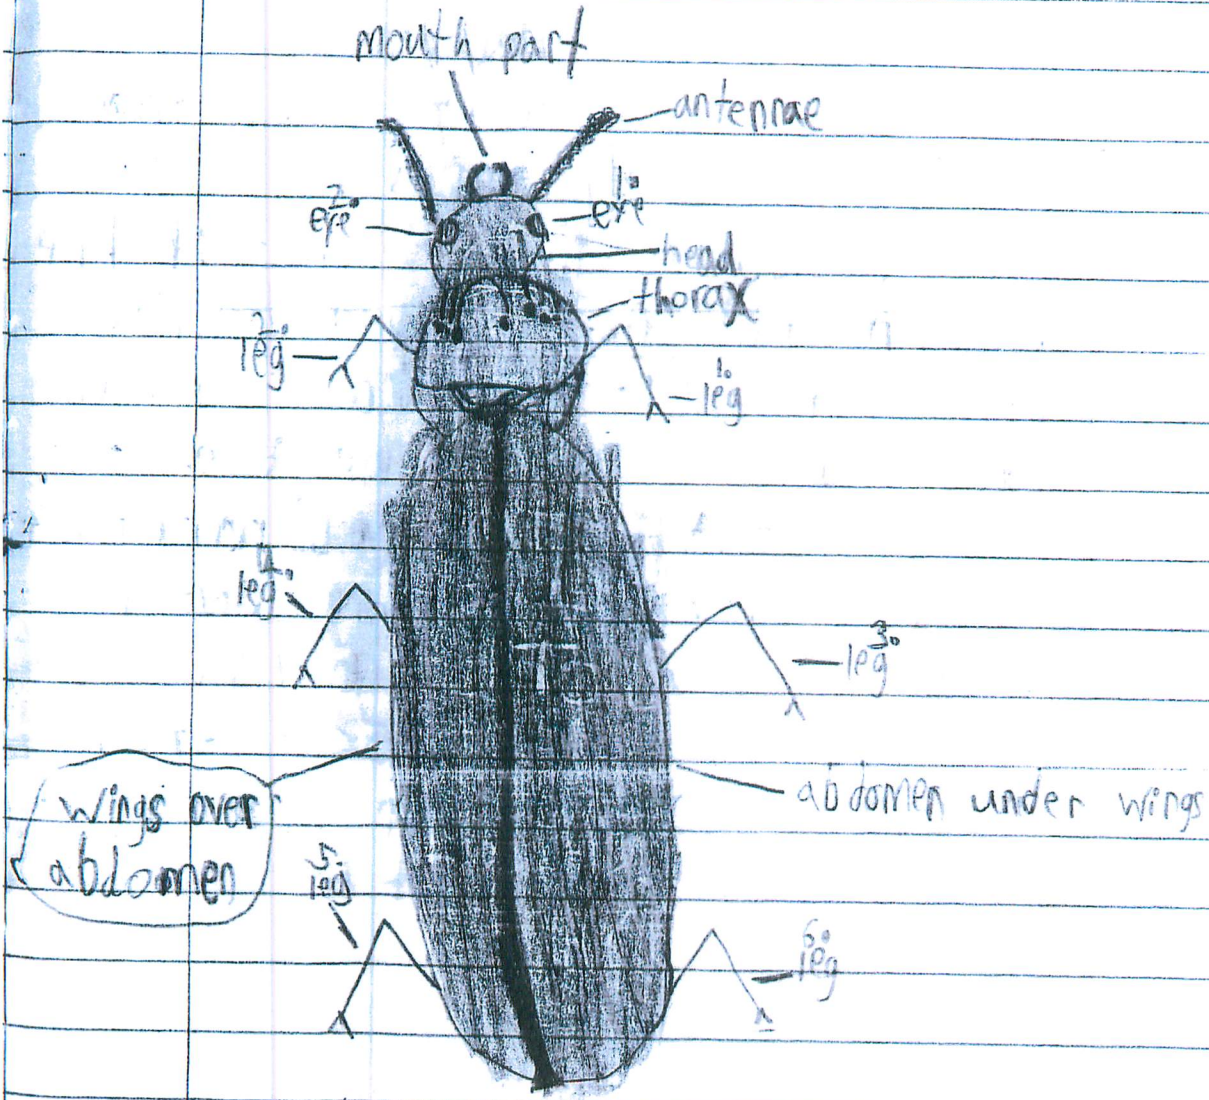 mouth part
antennae
2.
eye
1.
eye
head
thorax
2.
leg
1.
leg
4.
leg
3.
leg
wings over
abdomen
abdomen under wings
5.
leg
6.
leg